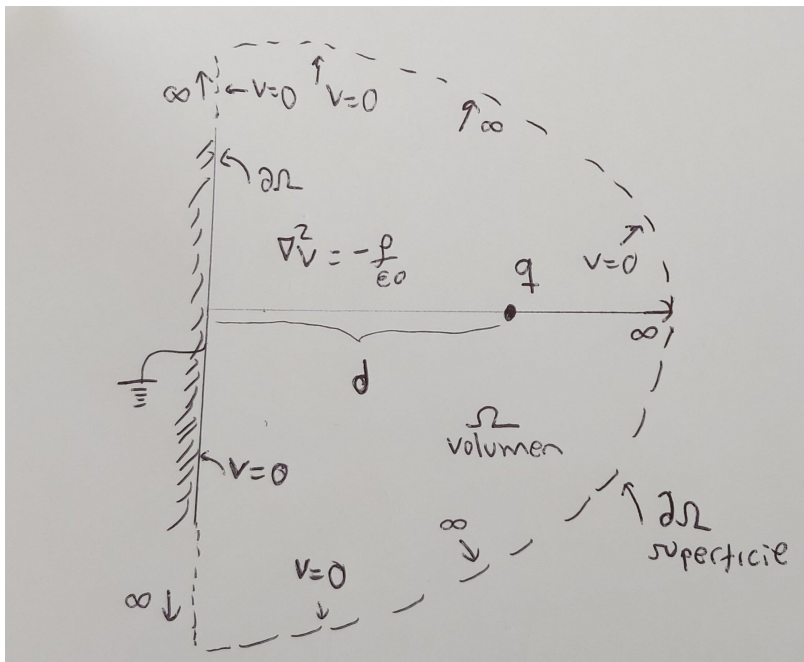 ∞ ↑ ← V=0
V=0
∞
∂Ω
∇²V = -ρ/ε0
V=0
q
∞
d
Ω
volumen
V=0
∂Ω
superficie
∞
V=0
∞ ↓